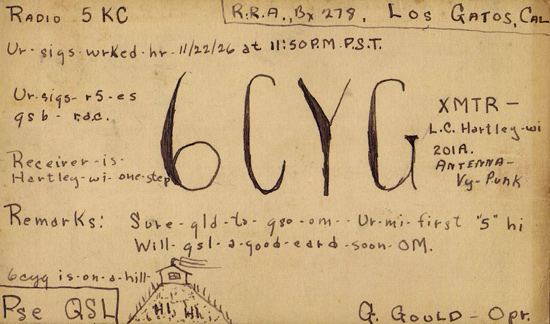 RADIO 5KC
R.R.A., Bx 278, Los Gatos, Cal
Ur-sigs-wrked-hr-11/22/26 at 11:50 P.M. P.S.T.
Ur-sigs-r5-es
qsb - rac.
6CYG
XMTR -
L.C. Hartley-wi
201A.
ANTENNA-
Vy-Punk
Receiver-is-
Hartley-wi-one-step
Remarks: Sure-gld-to-qso-om-- Ur-mi-first "5" hi
Will-qsl-a-good-card-soon-OM.
6cyg is-on-a-hill-
HI HI
Pse QSL
G. GOULD - Opr.